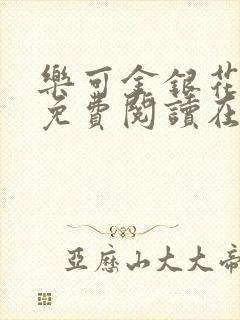 樂可金銀花
免費閱讀在
亞歷山大大帝